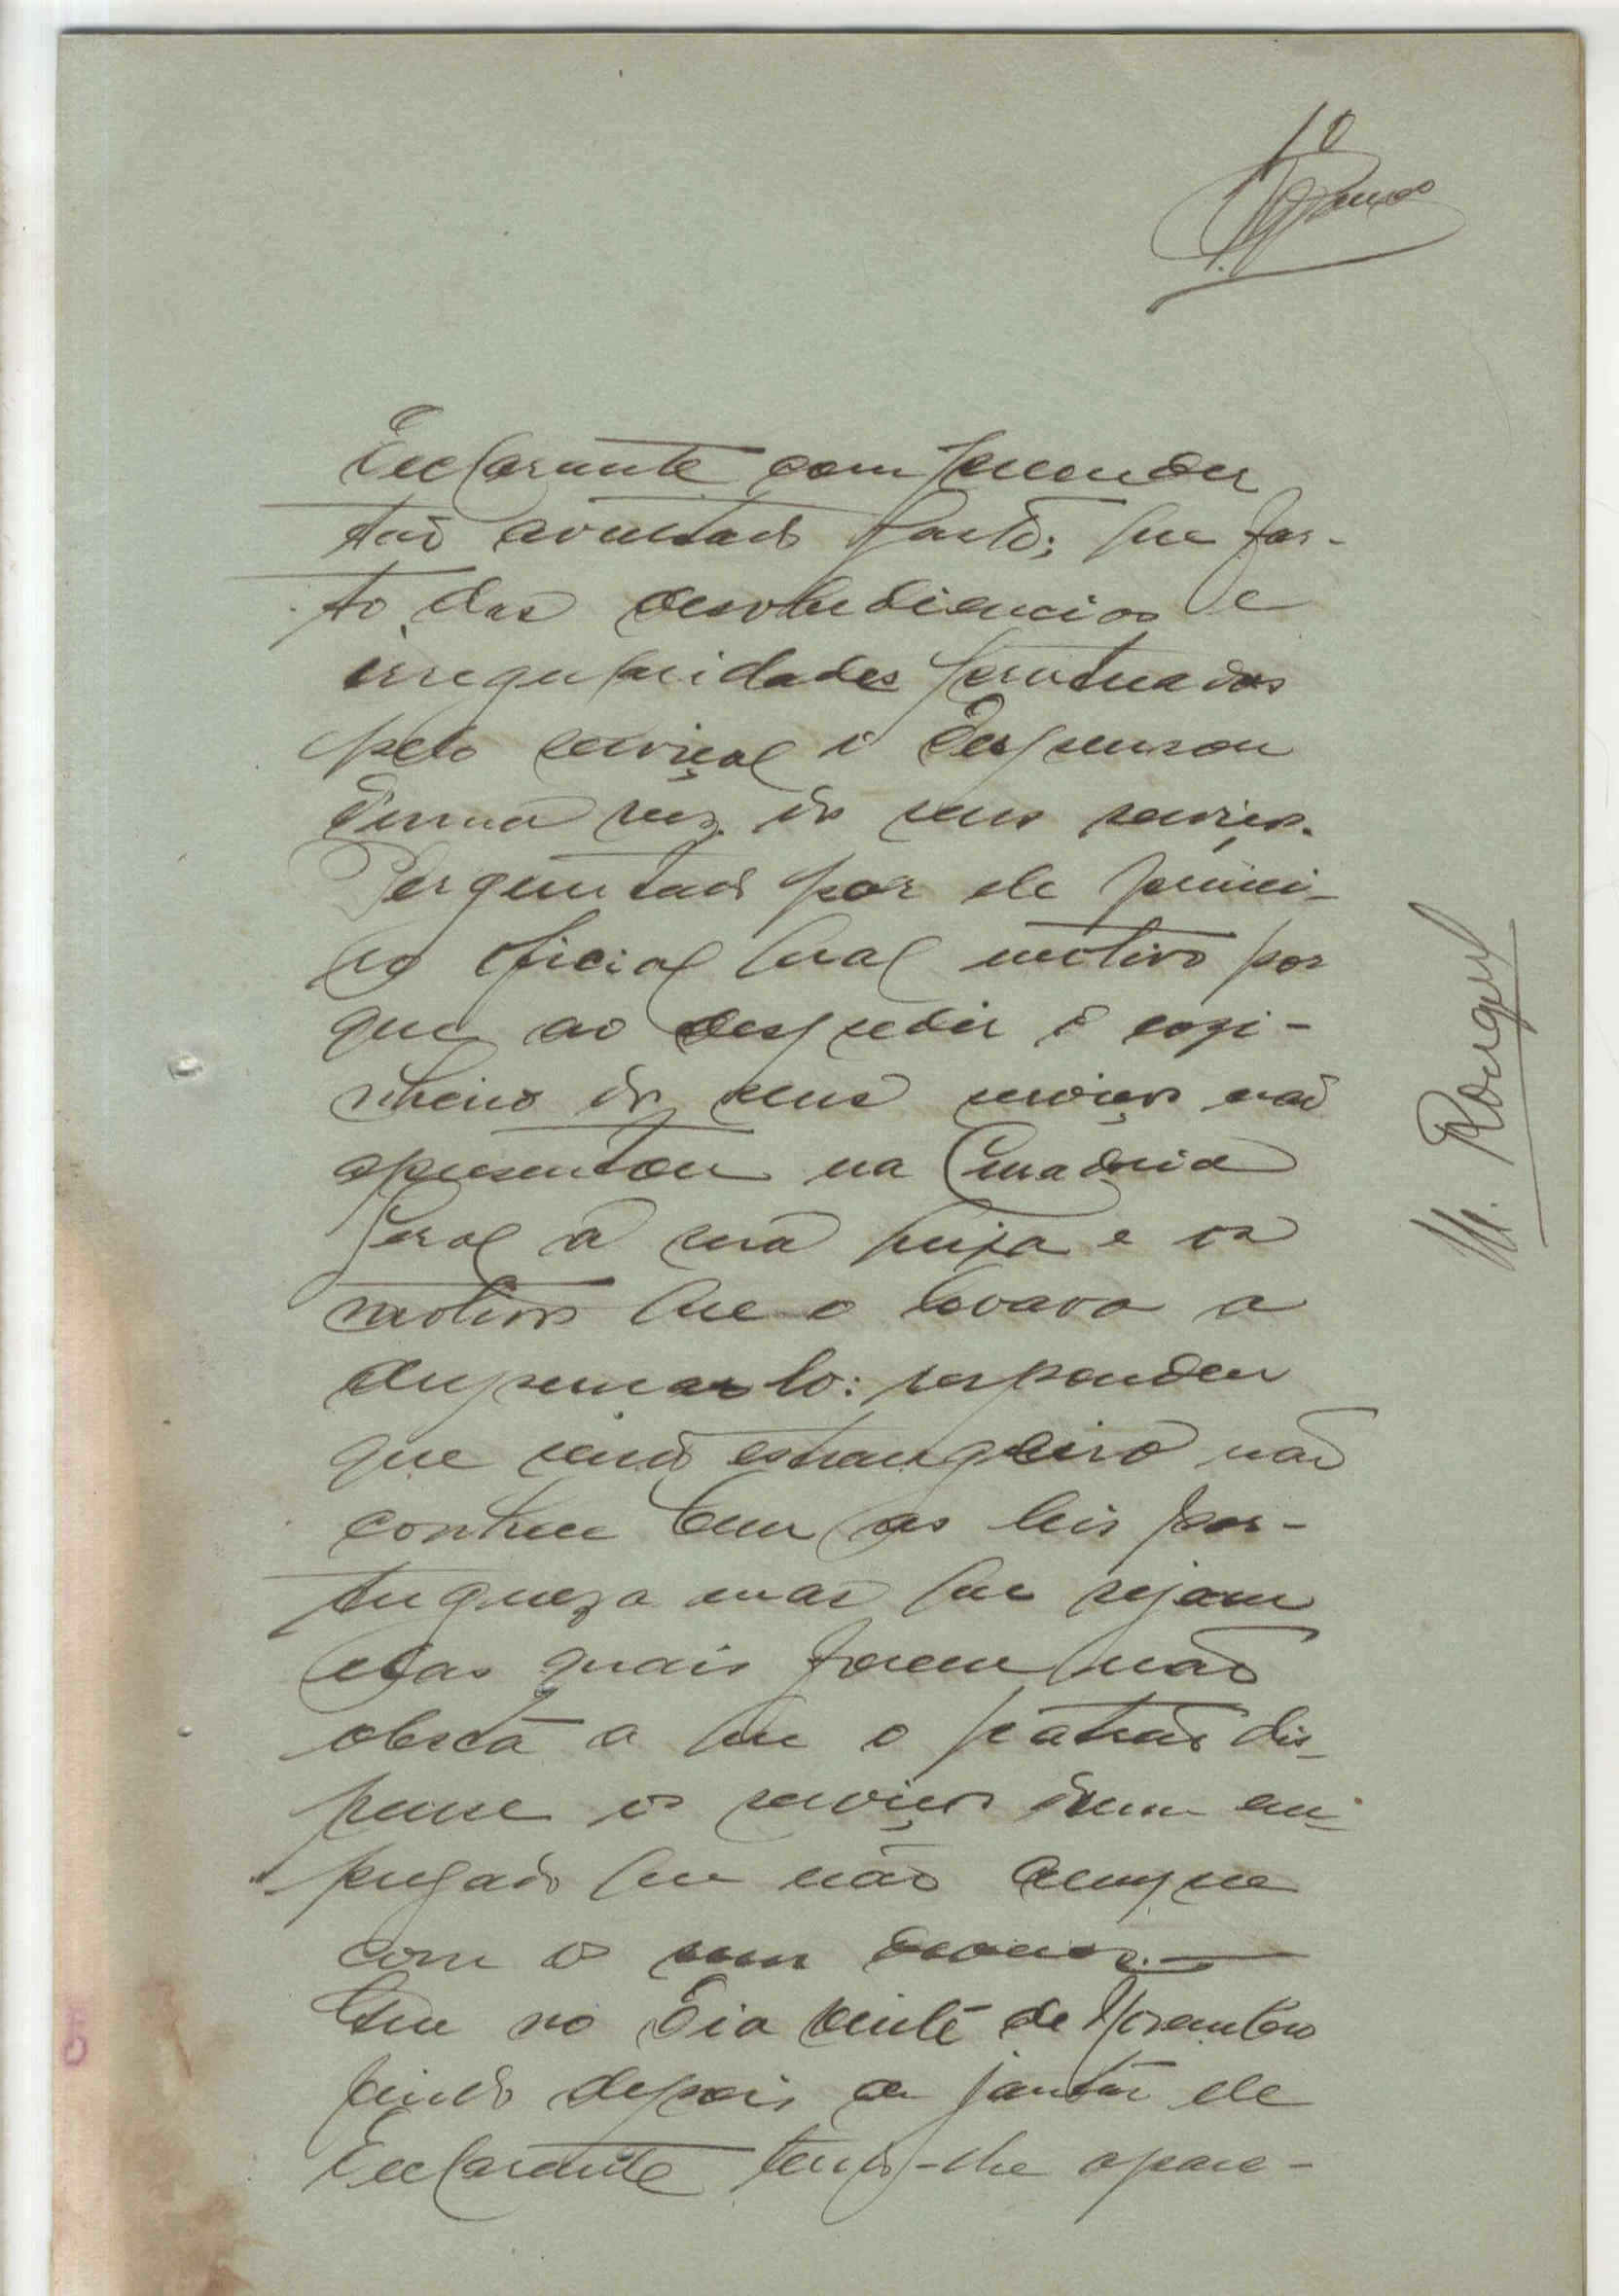 10
Declarante compreender
tão avultado gasto; que far-
to das desobediencias e
irregularidades praticadas
pelo serviçal o dispensou
duma vez dos seus serviços.
Perguntado por ele primei-
ro oficial qual motivo por
que ao despedir o cosi-
nheiro dos seus serviços não
apresentou na Curadoria
Geral a sua queixa e os
motivos que o levava a
dispensar-lo: respondeu
que sendo estrangeiro não
conhece bem as leis por-
tugueza mas que sejam
elas quais forem não
obsta a que o patrão dis-
pense os serviços dum em-
pregado que não cumpre
com os seus deveres.—
Que no dia vinte de Novembro
findo depois de jantar ele
Declarante tendo-lhe apare-